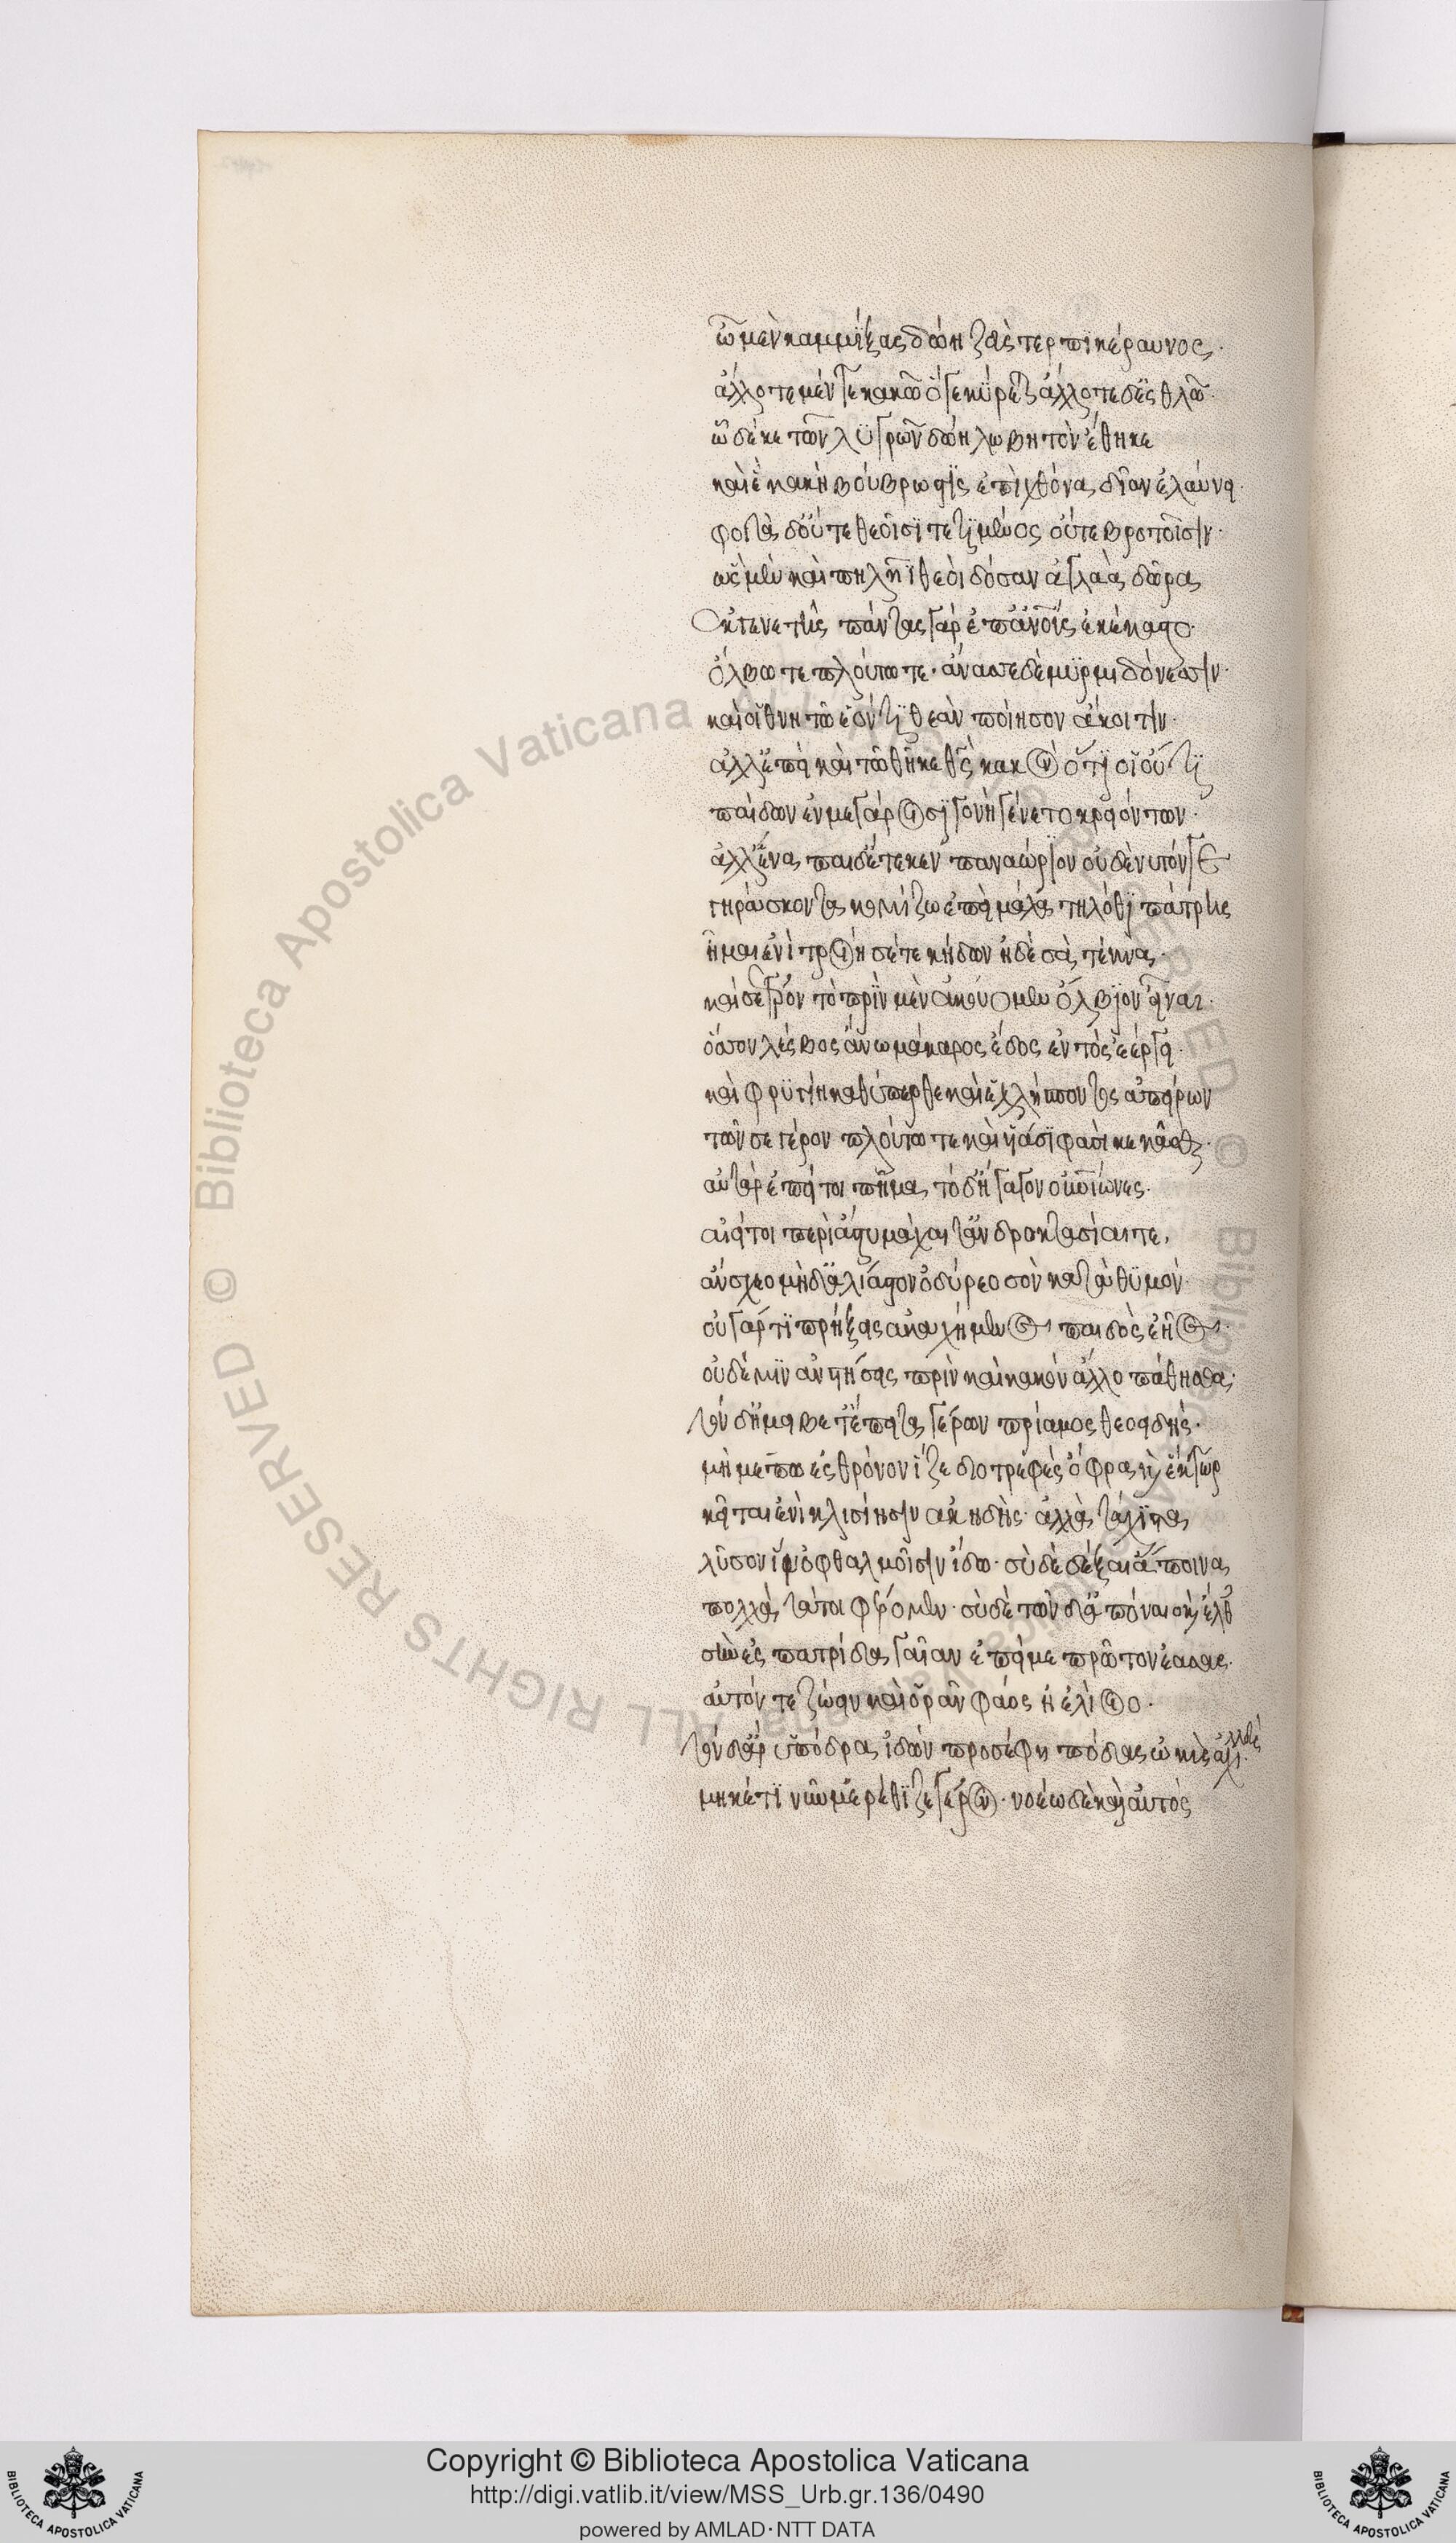 ὧ μὲν καμμίξας δώη ζεὺς τερπικέραυνος·
ἄλλοτε μέν γε κακῶ ὅγε κύρεται ἄλλοτε δ' ἐσθλῶ·
ὧ δέ κε τῶν λυγρῶν δώη λωβητὸν ἔθηκε
καί ἑ κακὴ βούβρωστις ἐπὶ χθόνα δῖαν ἐλαύνει·
φοιτᾶ δ' οὔτε θεοῖσι τετιμένος οὔτε βροτοῖσιν·
ὣς μὲν καὶ πηλῆϊ θεοὶ δόσαν ἀγλαὰ δῶρα
ἐκ γενετῆς πάντας γὰρ ἐπ' ἀν̅ο̅ι̅ς ἐκέκαστο·
ὄλβω τε πλούτω τε· ἄνασσε δὲ μυρμιδόνεσσιν·
καί οἱ θνητῶ ἐόντι θεὰν ποίησαν ἄκοιτιν·
ἀλλ' ἐπὶ καὶ τῶ θῆκε θ̅ς̅ κακὸν ὅττι οἱ οὔτι
παίδων ἐν μεγάροισι γονὴ γένετο κρειόντων·
ἀλλ' ἕνα παῖδ' ἔτεκεν παναώριον οὐδέν υ τόνγε
γηράσκοντα κομίζω ἐπεὶ μάλα τηλόθι πάτρης
ἧμαι ἐνὶ τροίη σέ τε κήδων ἠδὲ σὰ τέκνα·
καὶ σὲ γέρον τὸ πρὶν μὲν ἀκούομεν ὄλβιον εἶναι·
ὅσσον λέσβος ἄνω μάκαρος ἕδος ἐντὸς ἐέργει·
καὶ φρυγίη καθύπερθε καὶ ἑλλήσποντος ἀπείρων
τῶν σε γέρον πλούτω τε καὶ υἱάσι φασὶ κεκάσθαι·
αὐτὰρ ἐπεί τοι πῆμα τόδ' ἤγαγον οὐρανίωνες·
αἰεί τοι περὶ ἄστυ μάχαι τ' ἀνδροκτασίαι τε,
ἄνσχεο μὴ δ' ἀλίαστον ὀδύρεο σὸν κατὰ θυμόν·
οὐ γάρ τι πρήξεις ἀκαχήμενος παιδὸς ἑῆος·
οὐδέ μιν ἀνστήσεις πρὶν καὶ κακὸν ἄλλο πάθησθα·
τὸν δ' ἠμείβετ' ἔπειτα γέρων πρίαμος θεοειδής·
μή με πω ἐς θρόνον ἵζε διοτρεφὲς ὄφρα κεν ἕκτωρ
κεῖται ἐνὶ κλισίησιν ἀκηδής· ἀλλὰ τάχιστα
λῦσον ἵν' ὀφθαλμοῖσιν ἴδω· σὺ δὲ δέξαι ἄποινα
πολλὰ τά τοι φέρομεν· σὺ δὲ τῶν δ' ἀπόναιο καὶ ἔλθοις
σὴν ἐς πατρίδα γαῖαν ἐπεί με πρῶτον ἔασας·
αὐτόν τε ζώειν καὶ ὁρᾶν φάος ἠελίοιο·
τὸν δ' ἄρ ὑπόδρα ἰδὼν προσέφη πόδας ὠκὺς ἀχιλλεὺς·
μηκέτι νῦν μ' ἐρέθιζε γέρον· νοέω δὲ καὶ αὐτὸς
Copyright © Biblioteca Apostolica Vaticana
http://digi.vatlib.it/view/MSS_Urb.gr.136/0490
powered by AMLAD·NTT DATA
BIBLIOTECA APOSTOLICA VATICANA
BIBLIOTECA APOSTOLICA VATICANA
© Biblioteca Apostolica Vaticana ALL RIGHTS RESERVED